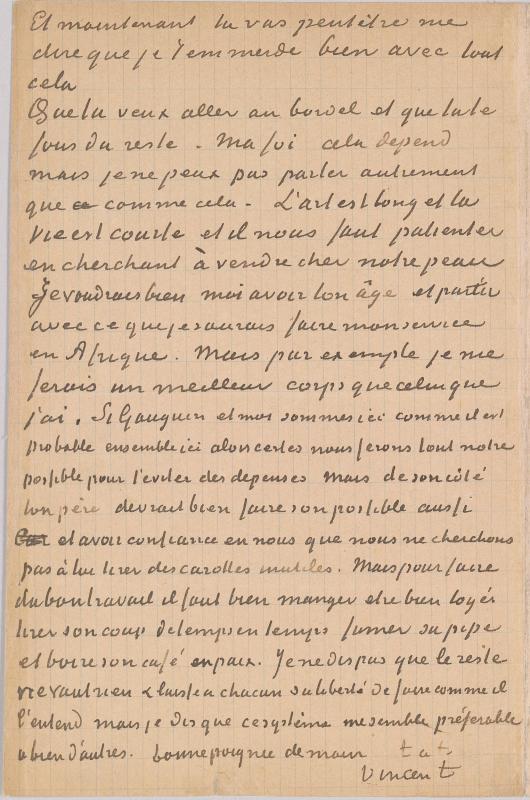 Et maintenant tu vas peut être me
dire que je t'emmerde bien avec tout
cela
Que tu veux aller au bordel et que tu te
fous du reste. Ma foi cela depend
mais je ne peux pas parler autrement
que comme cela. L'art est long et la
vie est courte et il nous faut patienter
en cherchant à vendre cher notre peau
Je voudrais bien moi avoir ton âge et partir
avec ce que je saurais faire mon service
en Afrique. Mais par exemple je me
ferais un meilleur corps que celui que
j'ai. Si Gauguin et moi sommes ici comme il est
probable ensemble ici alors certes nous ferons tout notre
possible pour t'eviter des depenses mais de son côté
ton père devrait bien faire son possible aussi
et avoir confiance en nous que nous ne cherchons
pas à lui tirer des carottes inutiles. Mais pour faire
du bon travail il faut bien manger etre bien logé
tirer son coup de temps en temps fumer sa pipe
et boire son café en paix. Je ne dis pas que le reste
ne vaut rien & laisse a chacun sa liberté de faire comme il
l'entend mais je dis que ce système me semble préférable
a bien d'autres. bonne poignee de main t. à t.
Vincent